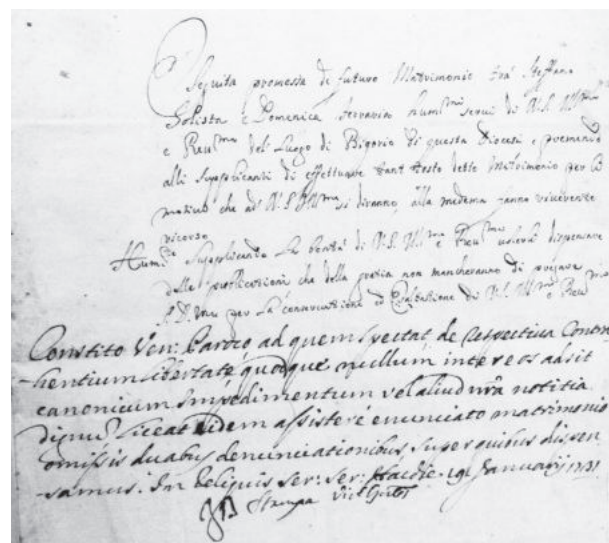 Seguita promessa di futuro Matrimonio trà Steffano
Solista e Domenica Ferrarin humi^mi servi di V.S. Ill^ma
e Reu^ma del Luogo di Bigorio di questa Diocesi e premendo
alli supplicanti di effettuare tant tosto detto Matrimonio per
motivi che ad V.S. Ill^ma si diranno, alla medema fanno riverente
ricorso
Humi^te Supplicando La bontà di V.S. Ill^ma e Reu^ma volerli dispensare
dalle publicationi che della gratia non mancheranno di pregare
S.D.M. per La conservatione ed Esaltatione di V.S. Ill^ma e Reu^ma
Constito Ven: Paroco ad quem spectat de respectiva Contra
-hentium libertate, quodque nullum inter eos adsit
canonicum Impedimentum vel aliud nrâ notitia
dignū, liceat eidem assistere enunciato matrimonio
omissis duabus denunciationibus, super quibus dispen
-samus. In reliquis ser: ser: Januarij 1731
JB Stampa Vic